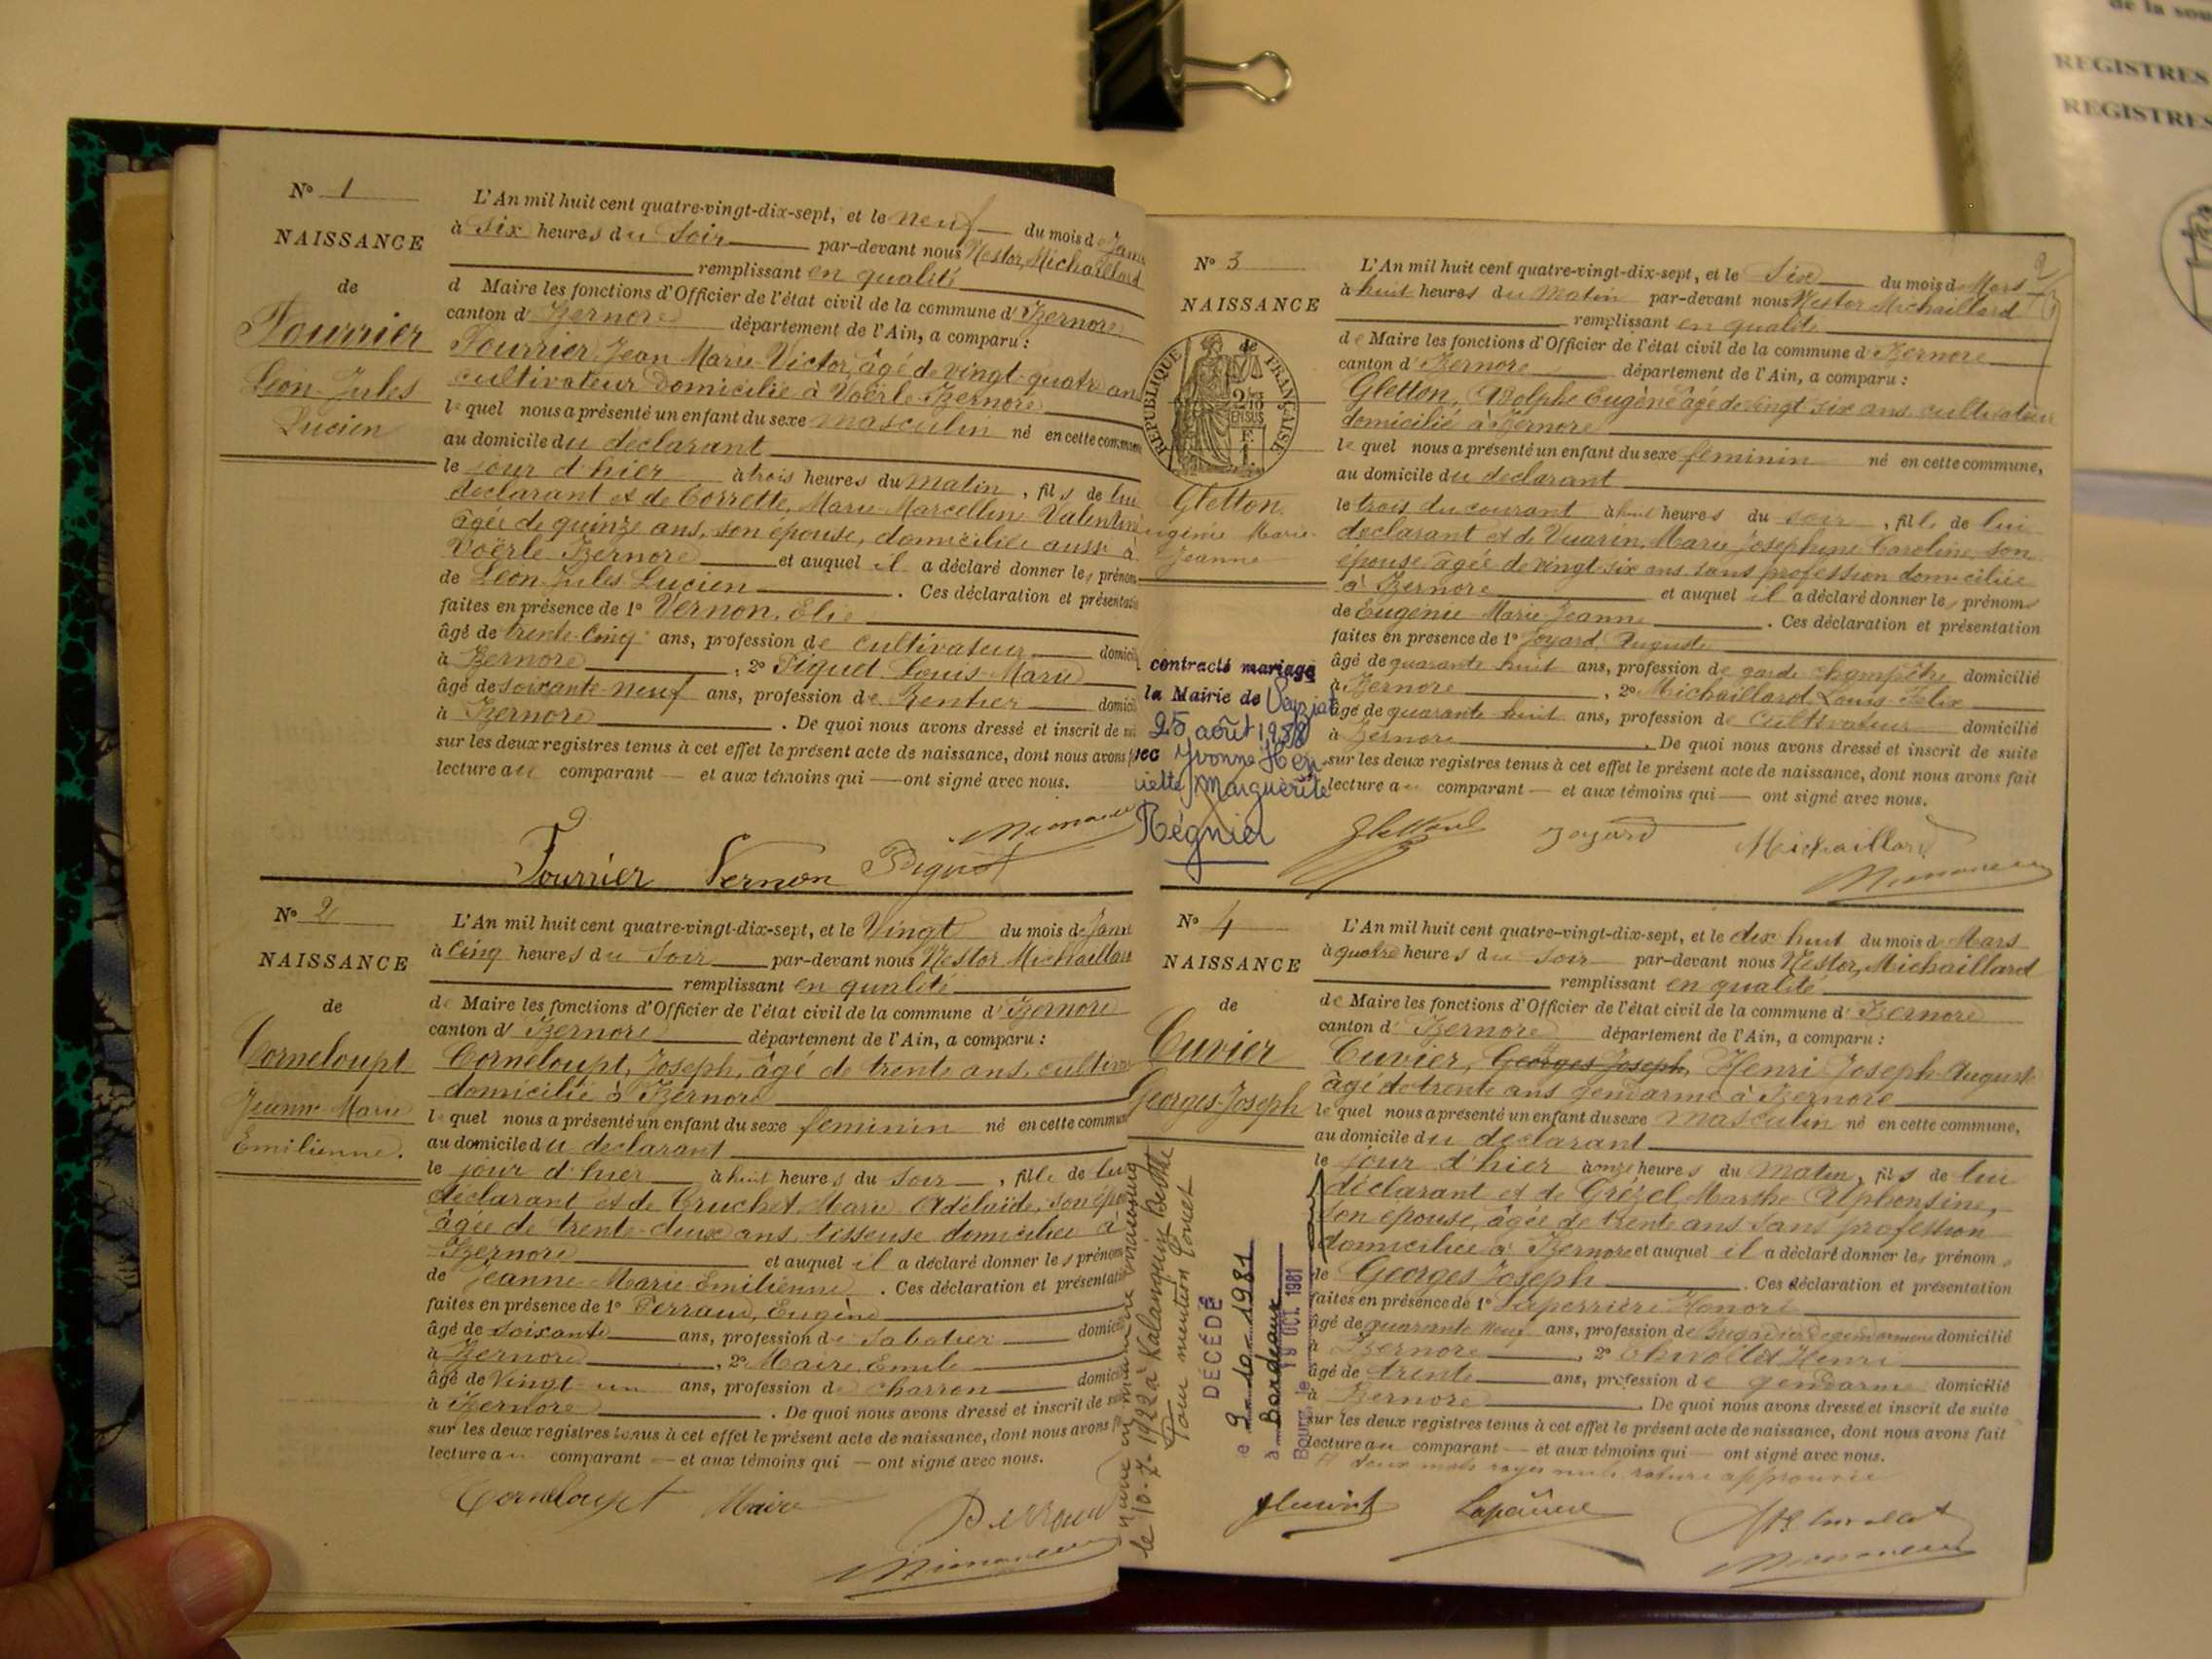 de la sou
REGISTRES
REGISTRES
N° 1
NAISSANCE
de
Fourrier
Léon-Jules
Lucien
L'An mil huit cent quatre-vingt-dix-sept, et le neuf du mois de Janv
à Six heures du Soir par-devant nous Nestor Michaillard
remplissant en qualité
d Maire les fonctions d'Officier de l'état civil de la commune d'Izernore
canton d'Izernore département de l'Ain, a comparu :
Fourrier Jean Marie Victor, âgé de vingt-quatre ans
cultivateur domicilié à Voërle-Izernore
lequel nous a présenté un enfant du sexe masculin né en cette commune
au domicile du déclarant
le jour d'hier à trois heures du matin, fils de lui
déclarant et de Corrette, Marie-Marcelline Valentine
âgée de quinze ans, son épouse, domiciliée aussi à
Voërle Izernore et auquel il a déclaré donner les prénoms
de Léon-Jules Lucien. Ces déclaration et présentati
faites en présence de 1° Vernon, Elie
âgé de trente-cinq ans, profession de cultivateur domici
à Izernore, 2° Piquet Louis-Marie
âgé de soixante-neuf ans, profession de Rentier domici
à Izernore. De quoi nous avons dressé et inscrit de
sur les deux registres tenus à cet effet le présent acte de naissance, dont nous avons f
lecture au comparant — et aux témoins qui — ont signé avec nous.
Fourrier Vernon Piquet
N° 2
NAISSANCE
de
Corneloupt
Jeanne Marie
Emilienne.
L'An mil huit cent quatre-vingt-dix-sept, et le Vingt du mois de Janv
à Cinq heures du Soir par-devant nous Nestor Michaillard
remplissant en qualité
de Maire les fonctions d'Officier de l'état civil de la commune d'Izernore
canton d'Izernore département de l'Ain, a comparu :
Corneloupt, Joseph, âgé de trente ans, cultiva
domicilié à Izernore
lequel nous a présenté un enfant du sexe féminin né en cette commun
au domicile du déclarant
le jour d'hier à huit heures du Soir, fille de lui
déclarant et de Cruchet Marie Adélaïde, son épo
âgée de trente-deux ans, tisseuse domiciliée à
Izernore et auquel il a déclaré donner les prénom
de Jeanne-Marie Emilienne. Ces déclaration et présentati
faites en présence de 1° Perraud, Eugène
âgé de soixante ans, profession de Sabotier domici
à Izernore, 2° Maire Emile
âgé de Vingt-un ans, profession de charron domici
à Izernore. De quoi nous avons dressé et inscrit de
sur les deux registres tenus à cet effet le présent acte de naissance, dont nous avons f
lecture au comparant — et aux témoins qui — ont signé avec nous.
Corneloupt Maire Perraud
N° 3
NAISSANCE
RÉPUBLIQUE FRANÇAISE
Gletton
ugénie Marie-
Jeanne
contracté mariage
la Mairie de Veyziat
25 août 1938
vec Yvonne Hen-
riette Marguerite
Régnier
2
L'An mil huit cent quatre-vingt-dix-sept, et le Six du mois de Mars
à huit heures du Matin par-devant nous Nestor Michaillard
remplissant en qualité
de Maire les fonctions d'Officier de l'état civil de la commune d'Izernore
canton d'Izernore département de l'Ain, a comparu :
Gletton, Adolphe Eugène âgé de vingt six ans cultivateur
domicilié à Izernore
lequel nous a présenté un enfant du sexe féminin né en cette commune,
au domicile du déclarant
le trois du courant à huit heures du soir, fille de lui
déclarant et de Vuarin, Marie Joséphine Caroline, son
épouse âgée de vingt-six ans sans profession domiciliée
à Izernore et auquel il a déclaré donner les prénoms
de Eugénie Marie-Jeanne. Ces déclaration et présentation
faites en présence de 1° Joyard, Auguste
âgé de quarante huit ans, profession de garde champêtre domicilié
à Izernore, 2° Michaillard Louis-Félix
âgé de quarante huit ans, profession de cultivateur domicilié
à Izernore. De quoi nous avons dressé et inscrit de suite
sur les deux registres tenus à cet effet le présent acte de naissance, dont nous avons fait
lecture au comparant — et aux témoins qui — ont signé avec nous.
Gletton Joyard Michaillard
N° 4
NAISSANCE
de
Cuvier
Georges-Joseph
le 10-7-1922 à
Pour mention
DÉCÉDÉ
le 9-10-1981
à Bordeaux
Bourg, le 19 OCT. 1981
L'An mil huit cent quatre-vingt-dix-sept, et le dix huit du mois de Mars
à quatre heures du Soir par-devant nous Nestor, Michaillard
remplissant en qualité
de Maire les fonctions d'Officier de l'état civil de la commune d'Izernore
canton d'Izernore département de l'Ain, a comparu :
Cuvier, Georges Joseph, Henri-Joseph-Auguste
âgé de trente ans gendarme à Izernore
lequel nous a présenté un enfant du sexe masculin né en cette commune,
au domicile du déclarant
le jour d'hier à onze heures du matin, fils de lui
déclarant et de Grézel, Marthe Alphonsine,
son épouse, âgée de trente ans sans profession
domiciliée à Izernore et auquel il a déclaré donner les prénoms
de Georges Joseph. Ces déclaration et présentation
faites en présence de 1° Laperrière Honoré
âgé de quarante neuf ans, profession de Brigadier de gendarmerie domicilié
à Izernore, 2° Henri
âgé de trente ans, profession de gendarme domicilié
à Izernore. De quoi nous avons dressé et inscrit de suite
sur les deux registres tenus à cet effet le présent acte de naissance, dont nous avons fait
lecture au comparant — et aux témoins qui — ont signé avec nous.
deux mots rayés nuls rature approuvée